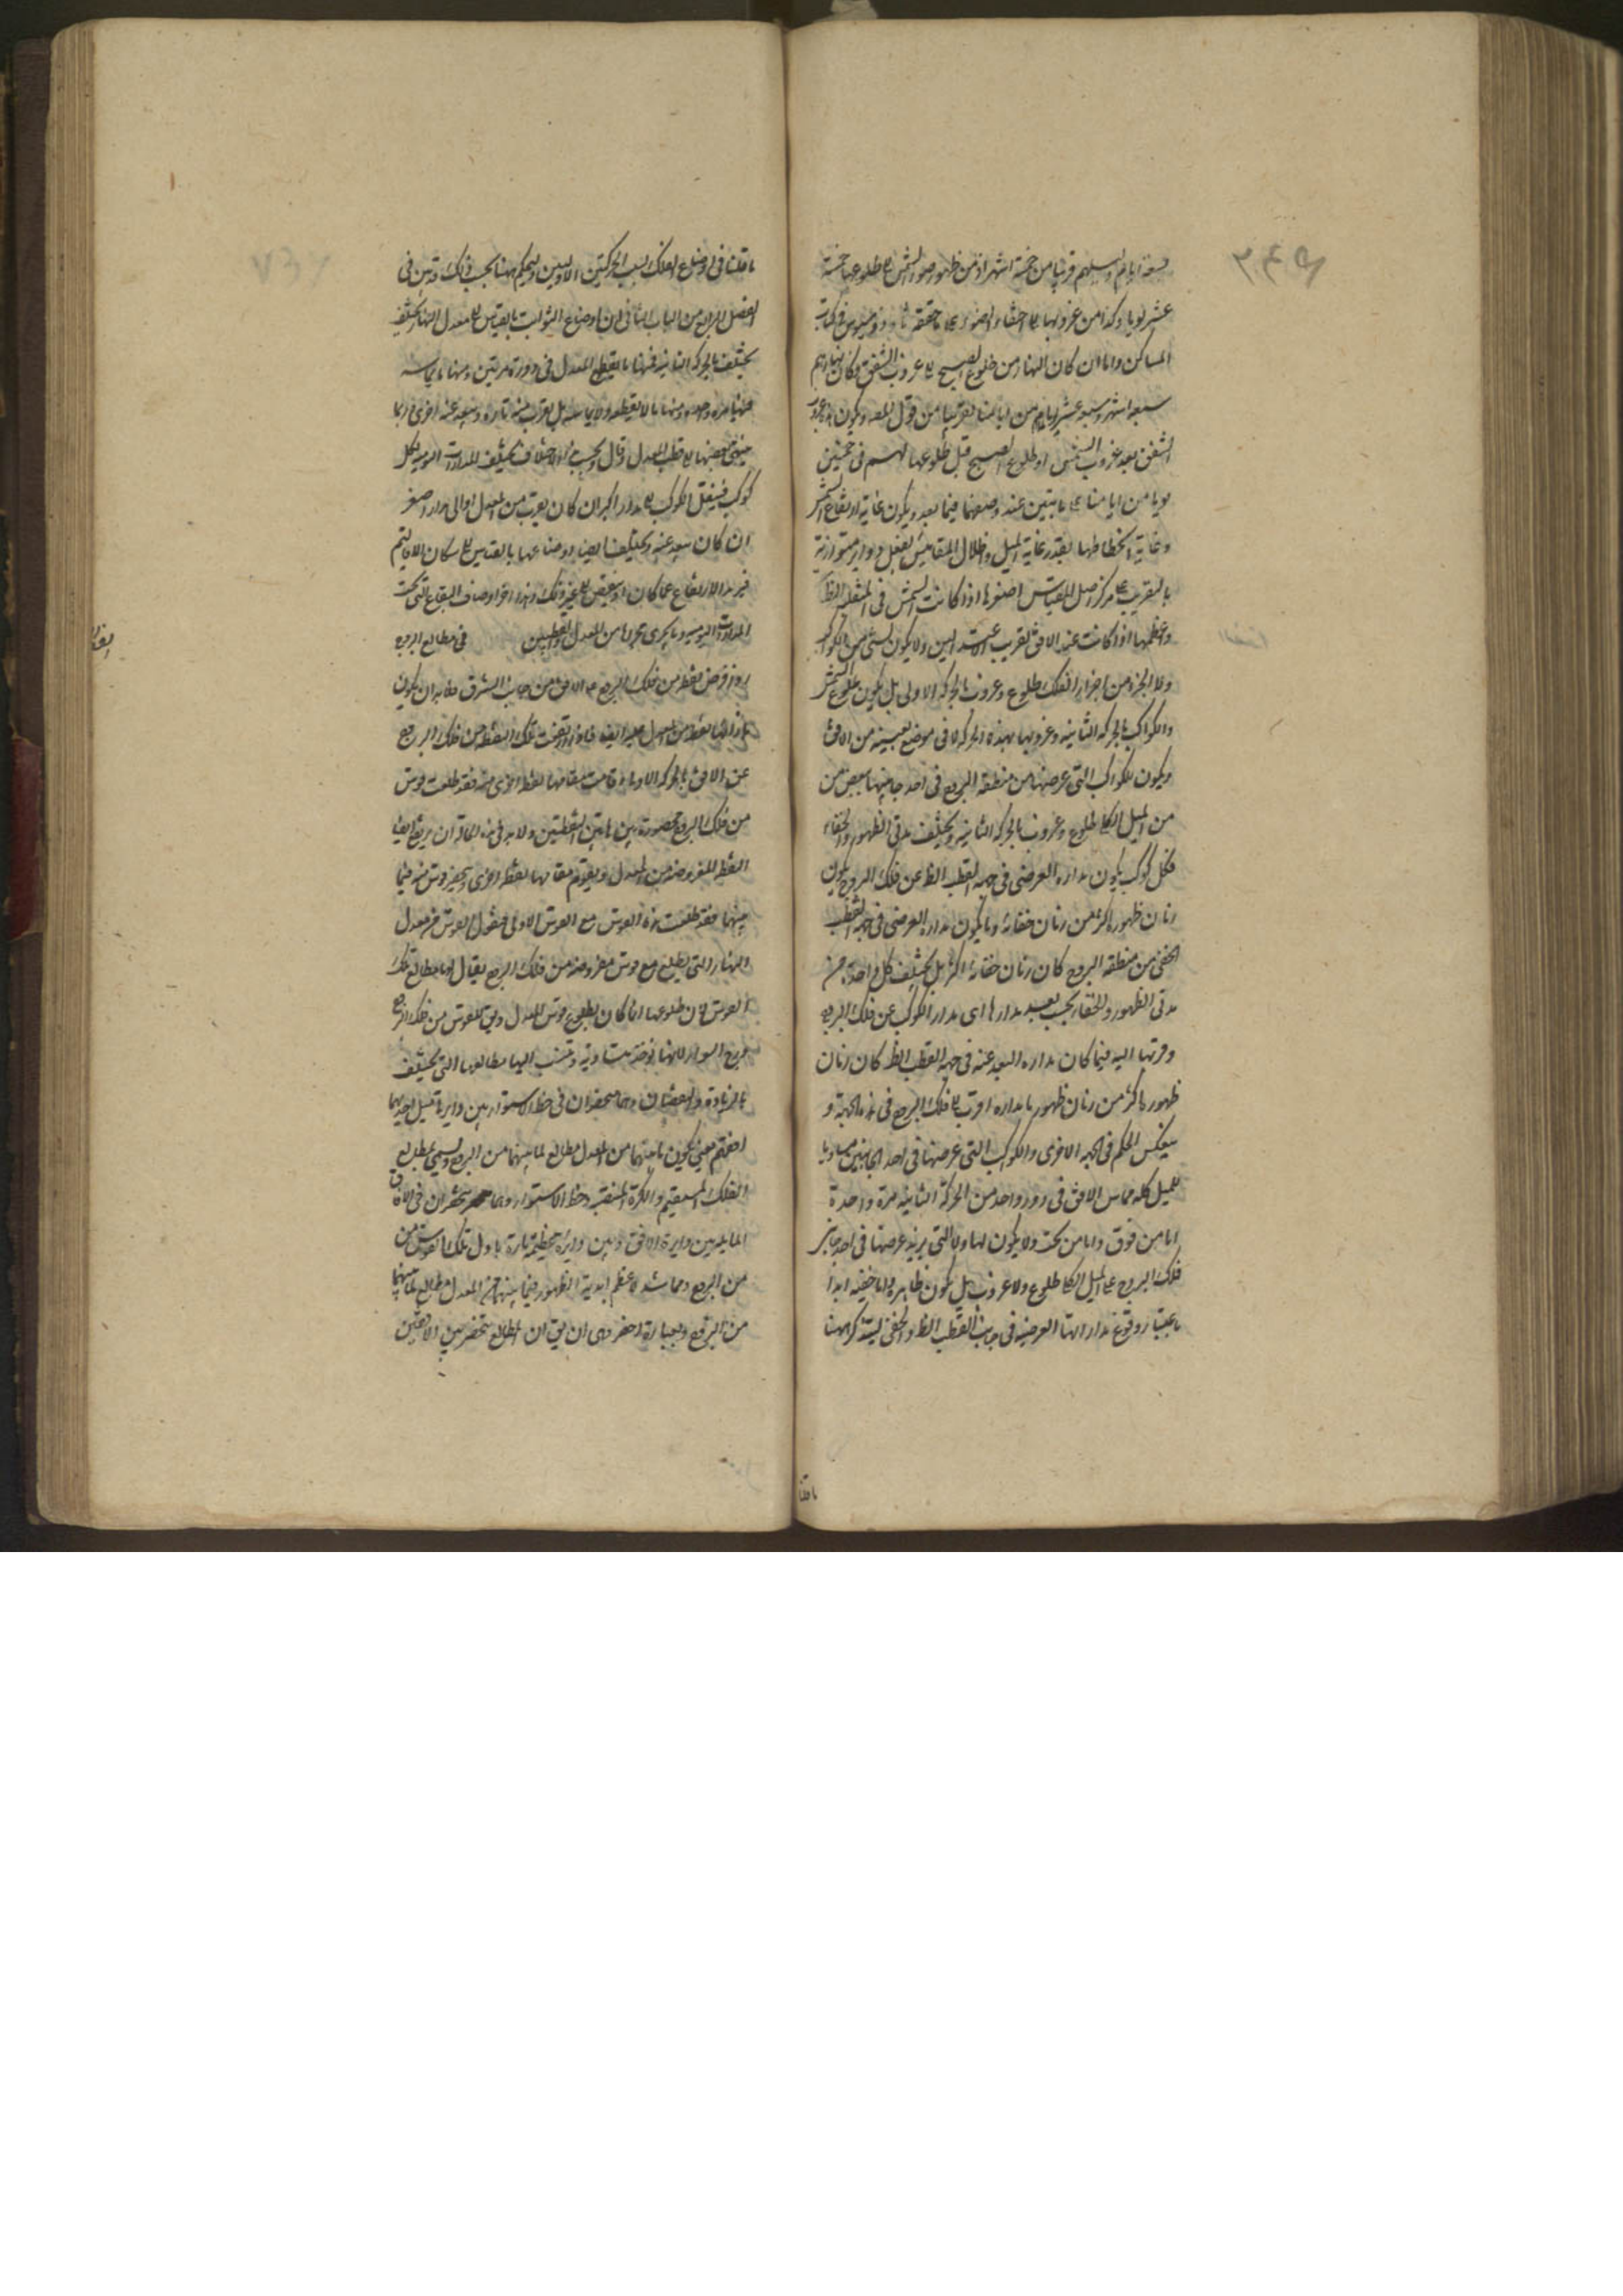 تسعة ايام وليلهم قريبا من خمسة اشهر اذ من ظهور ضوء الشمس الى طلوعها خمسة
عشر يوما وكذا من غروبها الى اختفاء الضوء على ما حققه ثاوذوسيوس في كتاب
المساكن واما ان كان النهار من طلوع الصبح الى غروب الشفق فكان نهارهم
سبعة اشهر وسبعة عشر ايام من ايامنا تقريبا من قول المص ويكون غروب
الشفق بعد غروب الشمس او طلوع الصبح قبل طلوعها لهم في خمسين
يوما من ايامنا على ما تبين عند وصفهما فيما بعد ويكون غاية ارتفاع الشمس
وغاية انحطاطها بقدر غاية الميل واظلال المقاييس يفعل دواير متوازية
بالتقريب على مركز اصل المقياس اصغرها اذا كانت الشمس في المنقلب الظ
واعظمها اذا كانت عند الافق بقرب الاعتدالين ولا يكون لشيء من الكواكب
ولا لجزء من اجزاء الفلك طلوع وغروب بالحركة الاولى بل يكون طلوع الشمس
والكواكب بالحركة الثانية وغروبها بهذه الحركة لا في موضع بعينه من الافق
ويكون للكواكب التي عرضها من منطقة البروج في احد جانبيها ينقص من
من الميل الكلي طلوع وغروب بالحركة الثانية ويختلف مدتي الظهور والخفاء
فكل كوكب يكون مداره العرضي في جهة القطب الظ عن فلك البروج يكون
زمان ظهوره اكثر من زمان خفائه وما يكون مداره العرضي في جهة القطب
الخفي من منطقة البروج كان زمان خفائه اكثر بل يختلف كل واحدة من
مدتي الظهور والخفاء بحسب بعد مدارها اى مدار الكوكب عن فلك البروج
وقربها اليه فيما كان مداره البعد عنه في جهة القطب الظ كان زمان
ظهوره اكثر من زمان ظهور ما مداره اقرب الى فلك البروج في هذه الجهة و
ينعكس الحكم في الجهة الاخرى والكواكب التي عرضها في احد الجانبين مساويا
للميل كله مماس الافق في دور واحد من الحركة الثانية مرة واحدة
اما من فوق واما من تحت ولا يكون لها ولا للتي يزيد عرضها في احد جانبي
فلك البروج على الميل الكلي طلوع ولا غروب بل يكون ظاهرة واما خفية ابدا
باعتبار وقوع مداراتها العرضية في جانب القطب الظ والخفي ليتذكر ههنا
ما قلنا
ما قلنا في اوضاع الفلك بسبب الحركتين الاوليين وليحكم ههنا بحسب ذلك قد بين في
الفصل الرابع من الباب الثاني ان اوضاع الثوابت بالقياس الى معدل النهار يختلف
يختلف بالحركة الثانية فمنها ما يقطع المعدل في دورة مرتين ومنها ما يماسه
فيها مرة واحدة ومنها ما لا يقطعه ولا يماسه بل يقرب منه تارة ويبعد عنه اخرى وربما
ينتهي بعضها الى قطب المعدل وقال وبحسب هذا الاختلاف يختلف المدارات اليومية لكل
كوكب فينتقل الكوكب الى مدار اكبر ان كان يقرب من المعدل او الى مدار اصغر
ان كان يبعد عنه ويختلف ايضا اوضاعها بالقياس الى سكان الاقاليم
فيزيد الارتفاع عما كان او ينقص الى غير ذلك وهذا اخر اوصاف البقاع التي تحت
المدارات اليومية وما يجري مجراها من المعدل والقطبين في مطالع البروج
روز فرض نقطة من فلك البروج على الافق من جانب الشرق فلا بد ان يكون
بازائها نقطة من المعدل عليه ايضا فاذا ارتفعت تلك النقطة من فلك البروج
عن الافق بالحركة الاولى وقامت مقامها نقطة اخرى منه فقد طلعت قوس
من فلك البروج محصورة بين هاتين النقطتين ولا بد في هذه الحالة ان يرتفع ايضا
النقطة المفروضة من المعدل ويقوم مقامها نقطة اخرى وتنحصر قوس منه فيما
بينهما فقد طلعت هذه القوس مع القوس الاولى فنقول القوس من معدل
النهار التي يطلع مع قوس مفروضة من فلك البروج يقال لها مطالع تلك
القوس لان طلوعها انما كان بطلوع قوس المعدل ويق للقوس من فلك البروج
درج السواء لانها يؤخذ متساوية وتنسب اليها مطالعها التي يختلف
بالزيادة والنقصان وهما تنحصران في خط الاستواء بين دايرتي ميل احديهما
افقه فيكون ما بينهما من المعدل مطالع لما بينهما من البروج وتسمى مطالع
الفلك المستقيم والكرة المنتصبة وخط الاستواء وهما تنحصران في الافاق
المايلة بين دايرة الافق وبين دايرة عظيمة مارة باول تلك القوس من
من البروج ومماسة لاعظم ابدية الظهور فما بينهما من المعدل مطالع لما بينهما
من البروج وبعبارة اخصر وهى ان يق ان المطالع تنحصر بين الافقين